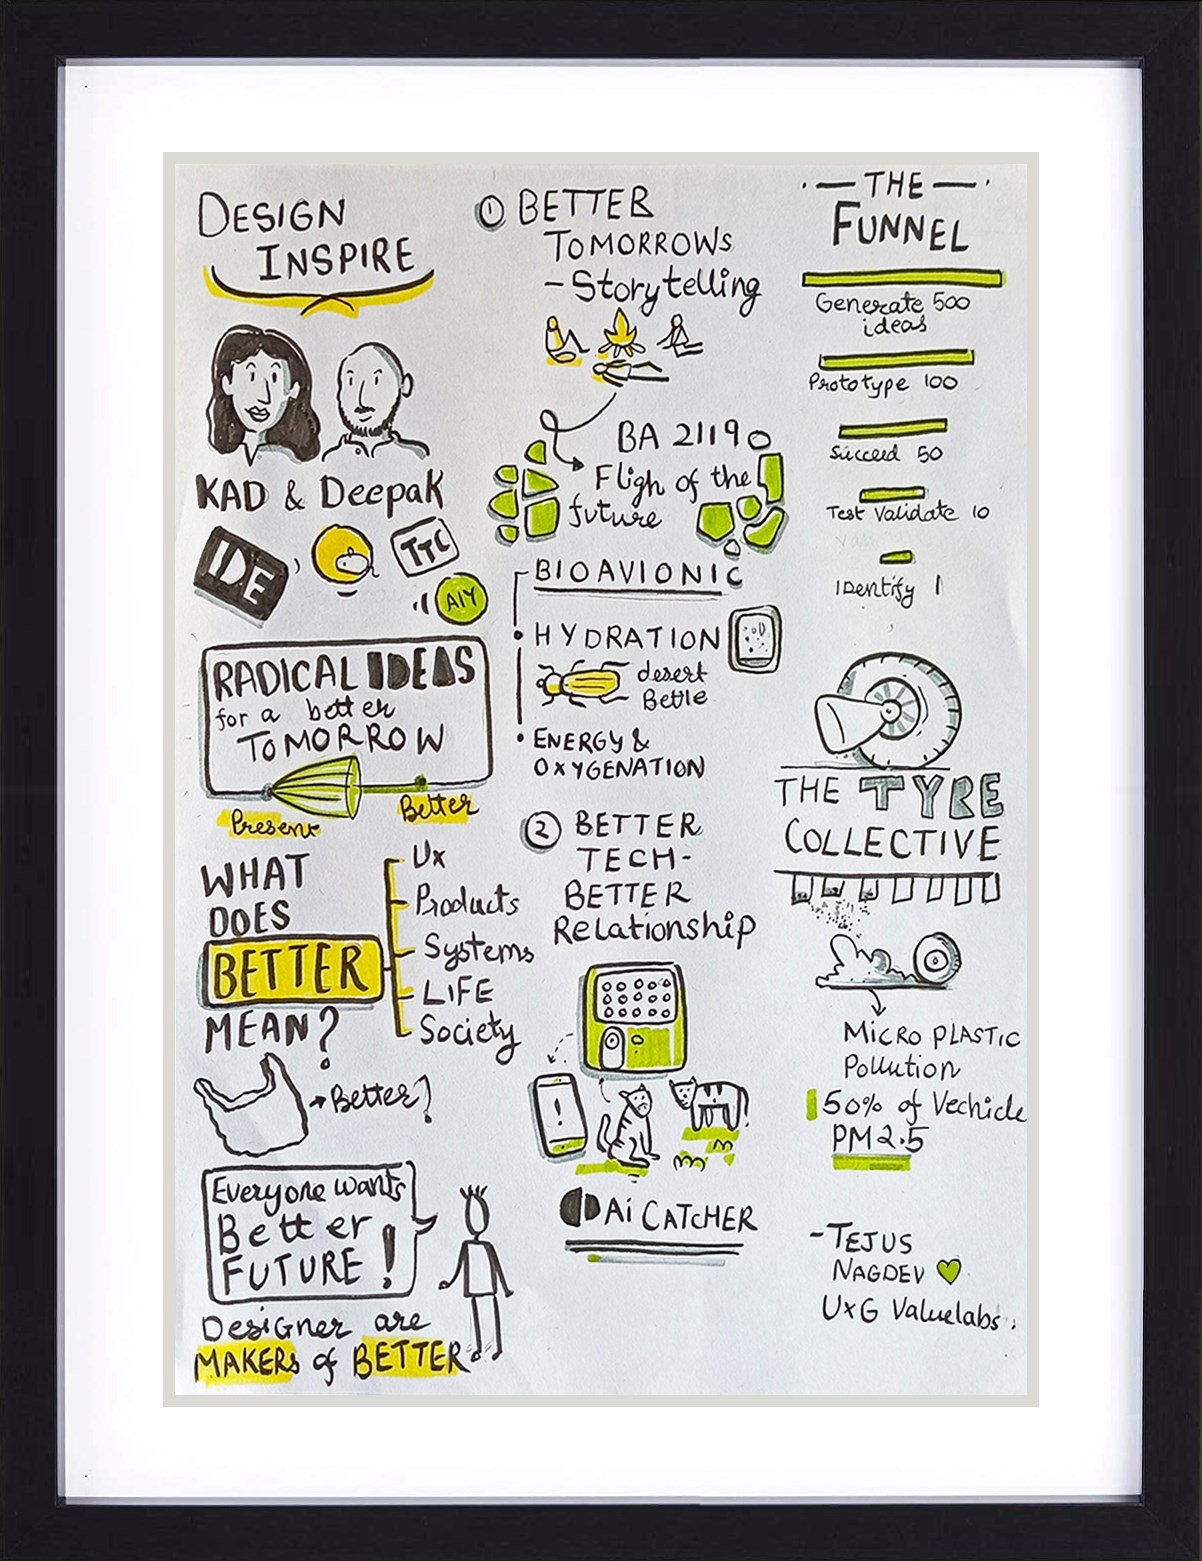 DESIGN
INSPIRE
KAD & Deepak
IDE
TTC
AIY
RADICAL IDEAS
for a better
TOMORROW
Present
Better
WHAT
DOES
BETTER
MEAN?
Ux
Products
Systems
LIFE
Society
Better?
Everyone wants
Better
FUTURE!
Designer are
MAKERs of BETTER
① BETTER
TOMORROWs
- Storytelling
BA 2119
Fligh of the
future
BIOAVIONIC
HYDRATION
desert
Bettle
ENERGY &
OXYGENATION
② BETTER
TECH-
BETTER
Relationship
!
Ai CATCHER
THE
FUNNEL
Generate 500
ideas
Prototype 100
Succeed 50
Test Validate 10
IDentify 1
THE TYRE
COLLECTIVE
MicRo PLASTIC
Pollution
50% of Vechicle
PM2.5
-TEJUS
NAGDEV
UxG Valuelabs.